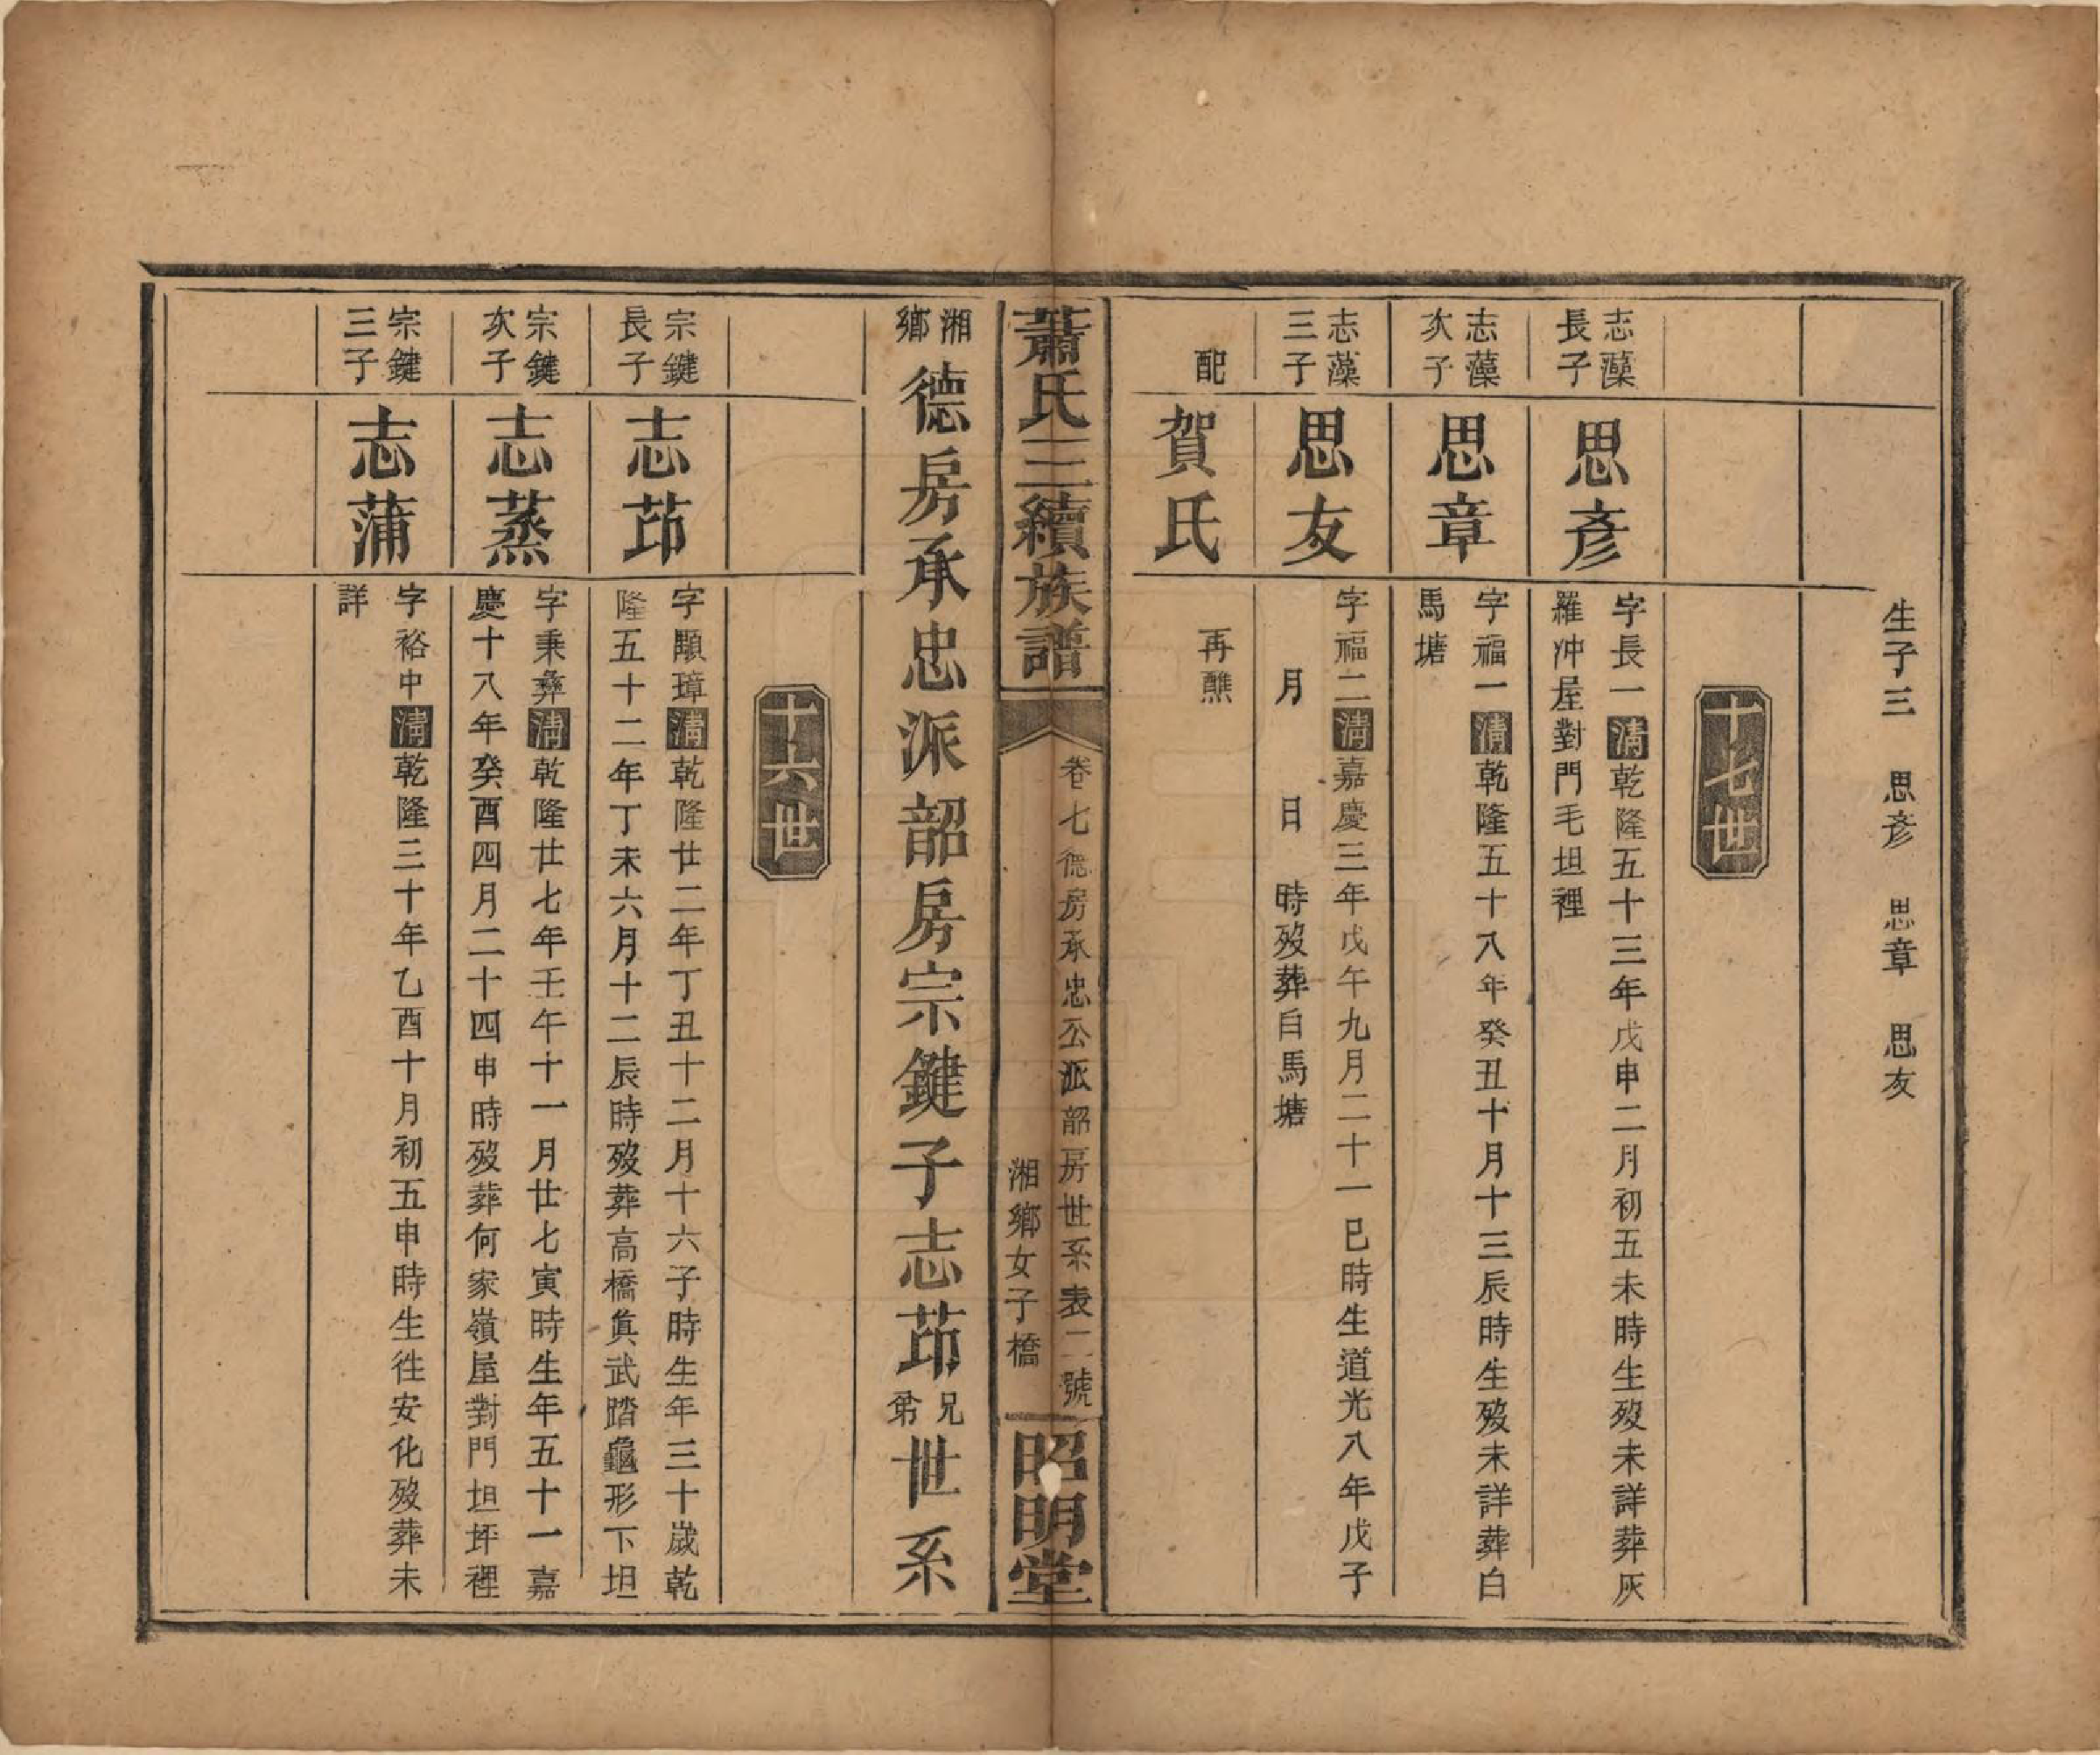 生子三　思彥　思章　思友
十七世
志藻
長子
思彥
字長一清乾隆五十三年戊申二月初五未時生歿未詳葬灰
羅沖屋對門毛坦裡
志藻
次子
思章
字福一清乾隆五十八年癸丑十月十三辰時生歿未詳葬白
馬塘
志藻
三子
思友
字福二清嘉慶三年戊午九月二十一巳時生道光八年戊子
月　日　時歿葬白馬塘
配
賀氏
再醮
蕭氏三續族譜
卷七德房承忠公派韶房世系表二號
湘鄉女子橋
昭明堂
湘鄉德房承忠派韶房宗鍵子志茚兄弟世系
十六世
宗鍵
長子
志茚
字顯璋清乾隆廿二年丁丑十二月十六子時生年三十歲乾
隆五十二年丁未六月十二辰時歿葬高橋眞武踏龜形下坦
宗鍵
次子
志蒸
字秉彝清乾隆廿七年壬午十一月廿七寅時生年五十一嘉
慶十八年癸酉四月二十四申時歿葬何家嶺屋對門坦坪裡
宗鍵
三子
志蒲
字裕中清乾隆三十年乙酉十月初五申時生往安化歿葬未
詳